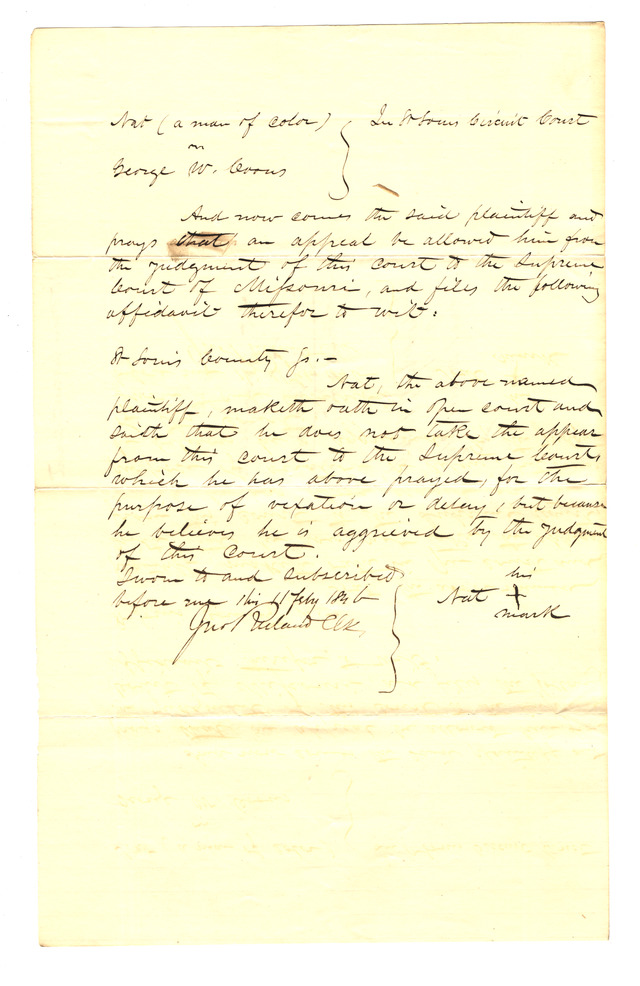 Nat (a man of color) } In St Louis Circuit Court
vs
George W. Coons
And now comes the said plaintiff and
prays that an appeal be allowed him from
the judgment of this court to the Supreme
Court of Missouri, and files the following
affidavit therefor to wit:
St Louis County Ss. -
Nat, the above named
plaintiff, maketh oath in open court and
saith that he does not take the appeal
from this court to the Supreme Court,
which he has above prayed, for the
purpose of vexation or delay, but because
he believes he is aggrieved by the judgment
of this court.
Sworn to and subscribed
before me this 11 Feby 1846
Jno Ruland Clk,
his
Nat +
mark